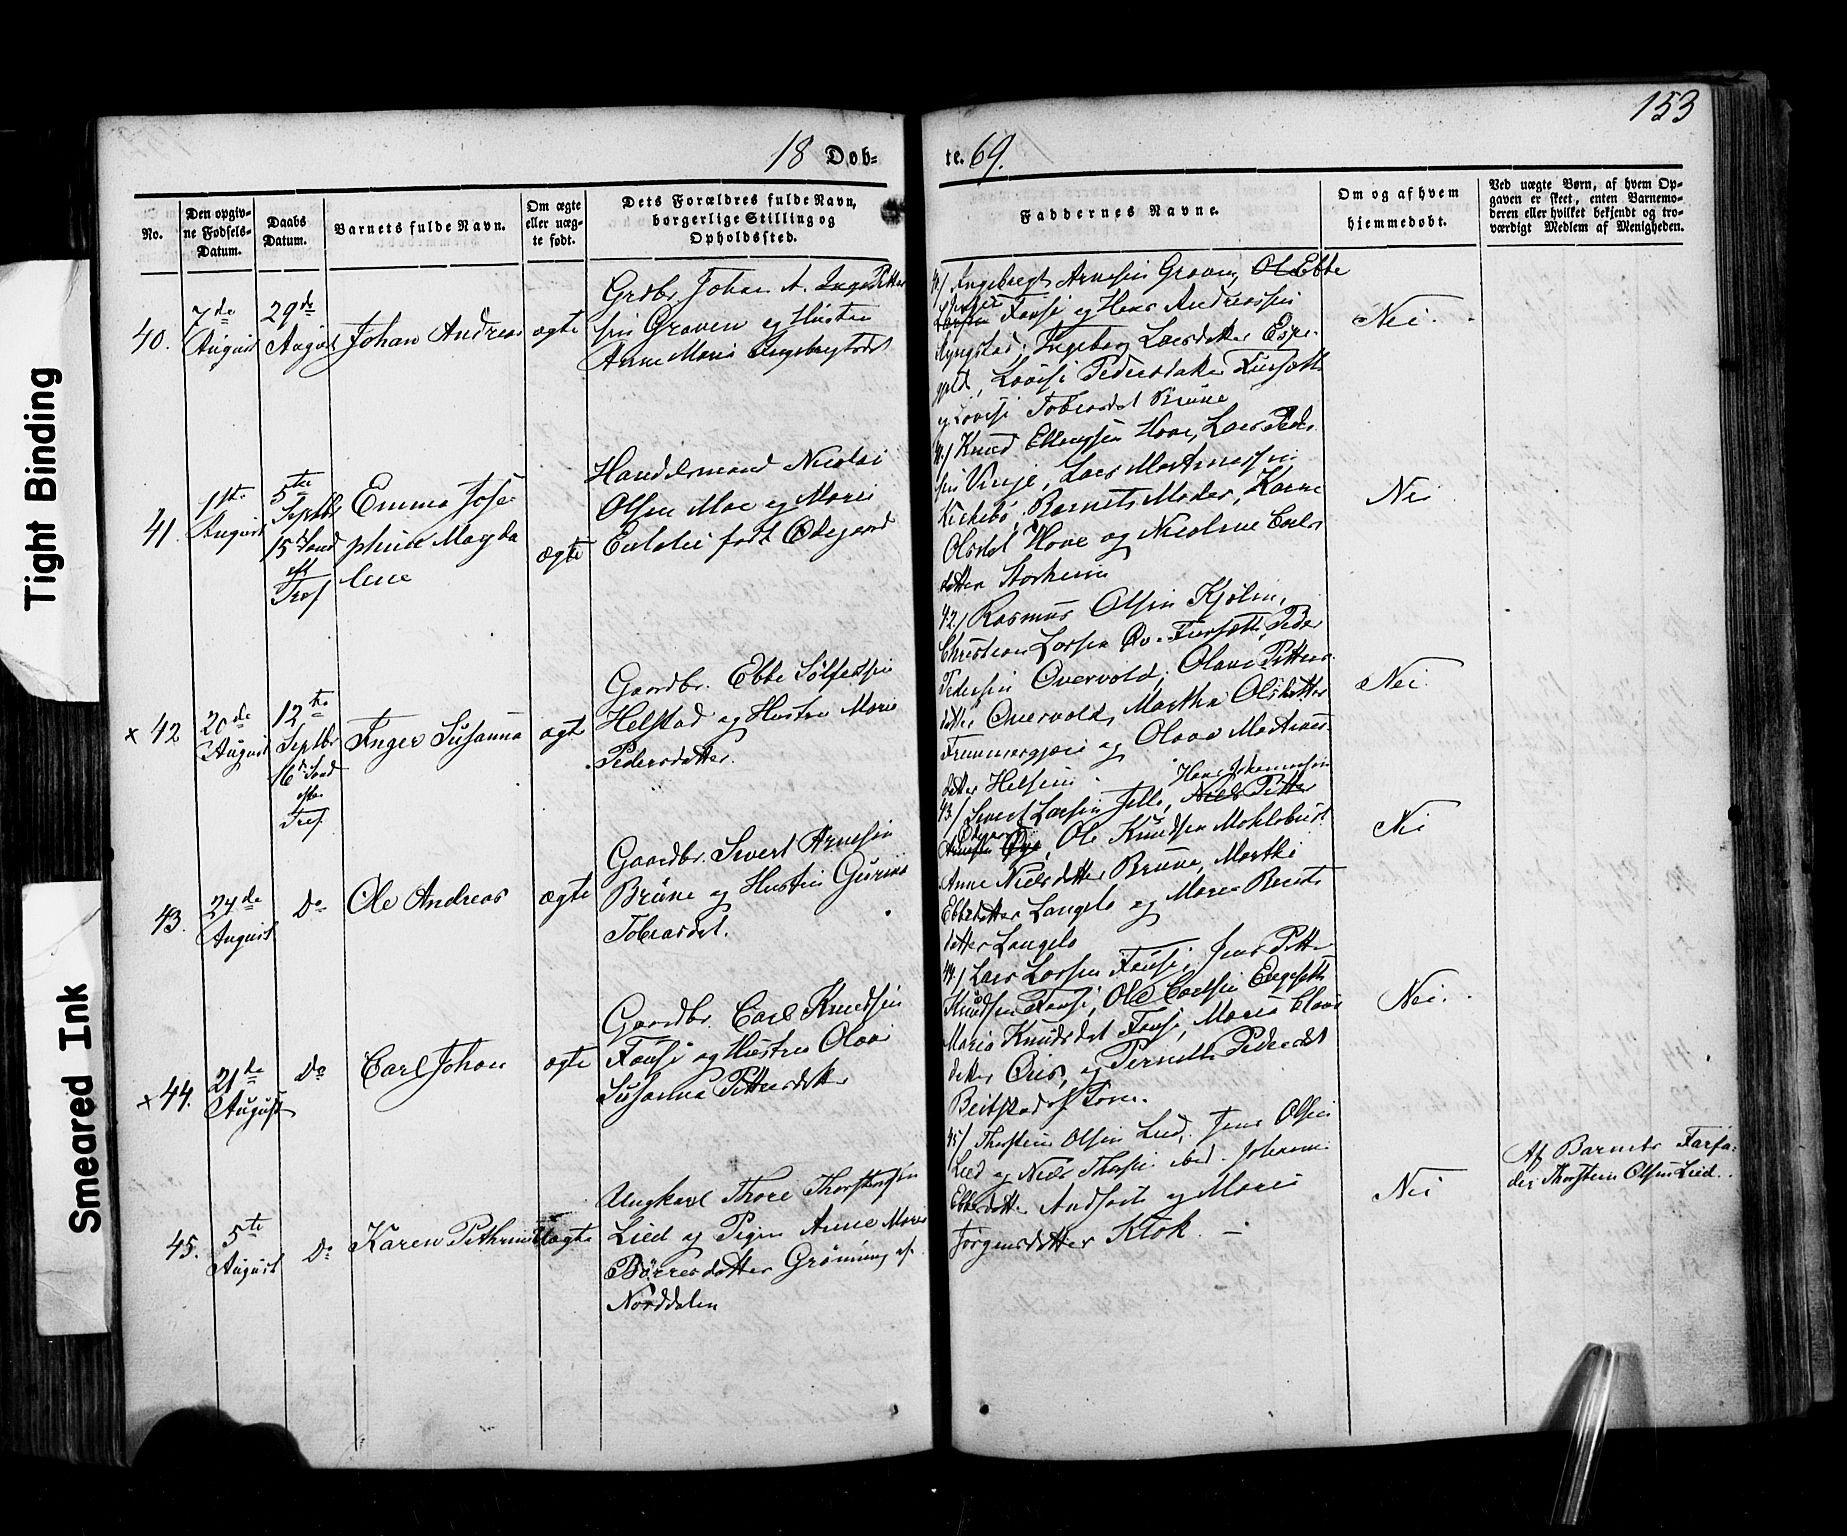 153
18 Døb-
te. 69.
No.
Den opgiv-
ne Fødsels-
Datum.
Daabs
Datum.
Barnets fulde Navn.
Om ægte
eller uæg-
te født.
Dets Forældres fulde Navn,
borgerlige Stilling og
Opholdssted.
Faddernes Navne.
Om og af hvem
hjemmedøbt.
Ved uægte Børn, af hvem Op-
gaven er skeet, enten Barnemo-
deren eller hvilket bekjendt og tro-
værdigt Medlem af Menigheden.
40.
7de
August
29de
August
Johan Andreas
ægte
Grdbr. Johan A. Petter
sen Graven og Hustru
Anne Marie Engebregtsdt
40/ Engebregt Arnesen Graven, Ebbe
Fausi og Hans Andreassen
Ryngstad, Ingeborg Larsdatter Espe-
gold, Lovise Pedersdatter Fursæth
og Lovise Tobiasdt Brune
Nei.
41.
1ste
August
5te
Septbr
15d Sond
eft
Tref
Emma Jose
phine Magda
lene
ægte
Handelsmand Nicolai
Olsen Moe og Marie
Eulalie født Ødegaard
41/ Knud Ellingsen Hove, Lars Peder
sen Vinje, Lars Martinussen
Kirkebø, Barnets Moder, Karne
Olsdt Hove og Nicoline Carls
datter Storheim
Nei
x 42
20de
August
12te
Septbr
16d Sond
efter
Tref
Inger Susanna
ægte
Gaardbr. Ebbe Sølfestsen
Helstad og Hustru Marie
Pedersdatter.
42/ Rasmus Olsen Kjølen,
Christian Larsen Øv. Fursæth, Peder
Pedersen Overvold, Olave Petters
datter Overvold, Martha Olsdatter
Frammergjære og Olave Martinus-
datter Helsem
Nei.
43.
24de
August
Do
Ole Andreas
ægte
Gaardbr. Sivert Arnesen
Brune og Hustru Gurine
Tobiasdt.
Hans Johannessen
43/ Sivert Larsen Jelle, Niels Petter
Ødegaard
Arnesen Øye, Ole Knudsen Mohlebust
Anne Nielsdatter Brune, Marthe
Ebbedatter Langelo og Maren Bernts
datter Langelo
Nei
x 44.
21de
August
Do
Carl Johan
ægte
Gaardbr. Carl Knudsen
Fausi og Hustru Olave
Susanna Pettersdatter
44/ Lars Larsen Fausi, Jens Petter
Knudsen Fausi, Ole Carlsen Engesæth
Maria Knudsdt Fausi, Maria Claus
datter Øvis, og Pernille Pedersdt
Beitstad
Nei.
45.
5te
August
Do
Karen Pethrine
Uægte
Ungkarl Thore Thorsteinsen
Lied og Pigen Anne Marie
Børresdatter Grønning af
Norddalen
45/ Thorstein Olsen Lied, Jens Olsen
Lied og Niels Thorsen ibid. Johanne
Ebbesdatter Andstad og Marie
Jørgensdatter Klok. –
Nei
Af Barnets Farfa-
der Thorstein Olsen Lied.
Tight Binding
Smeared Ink